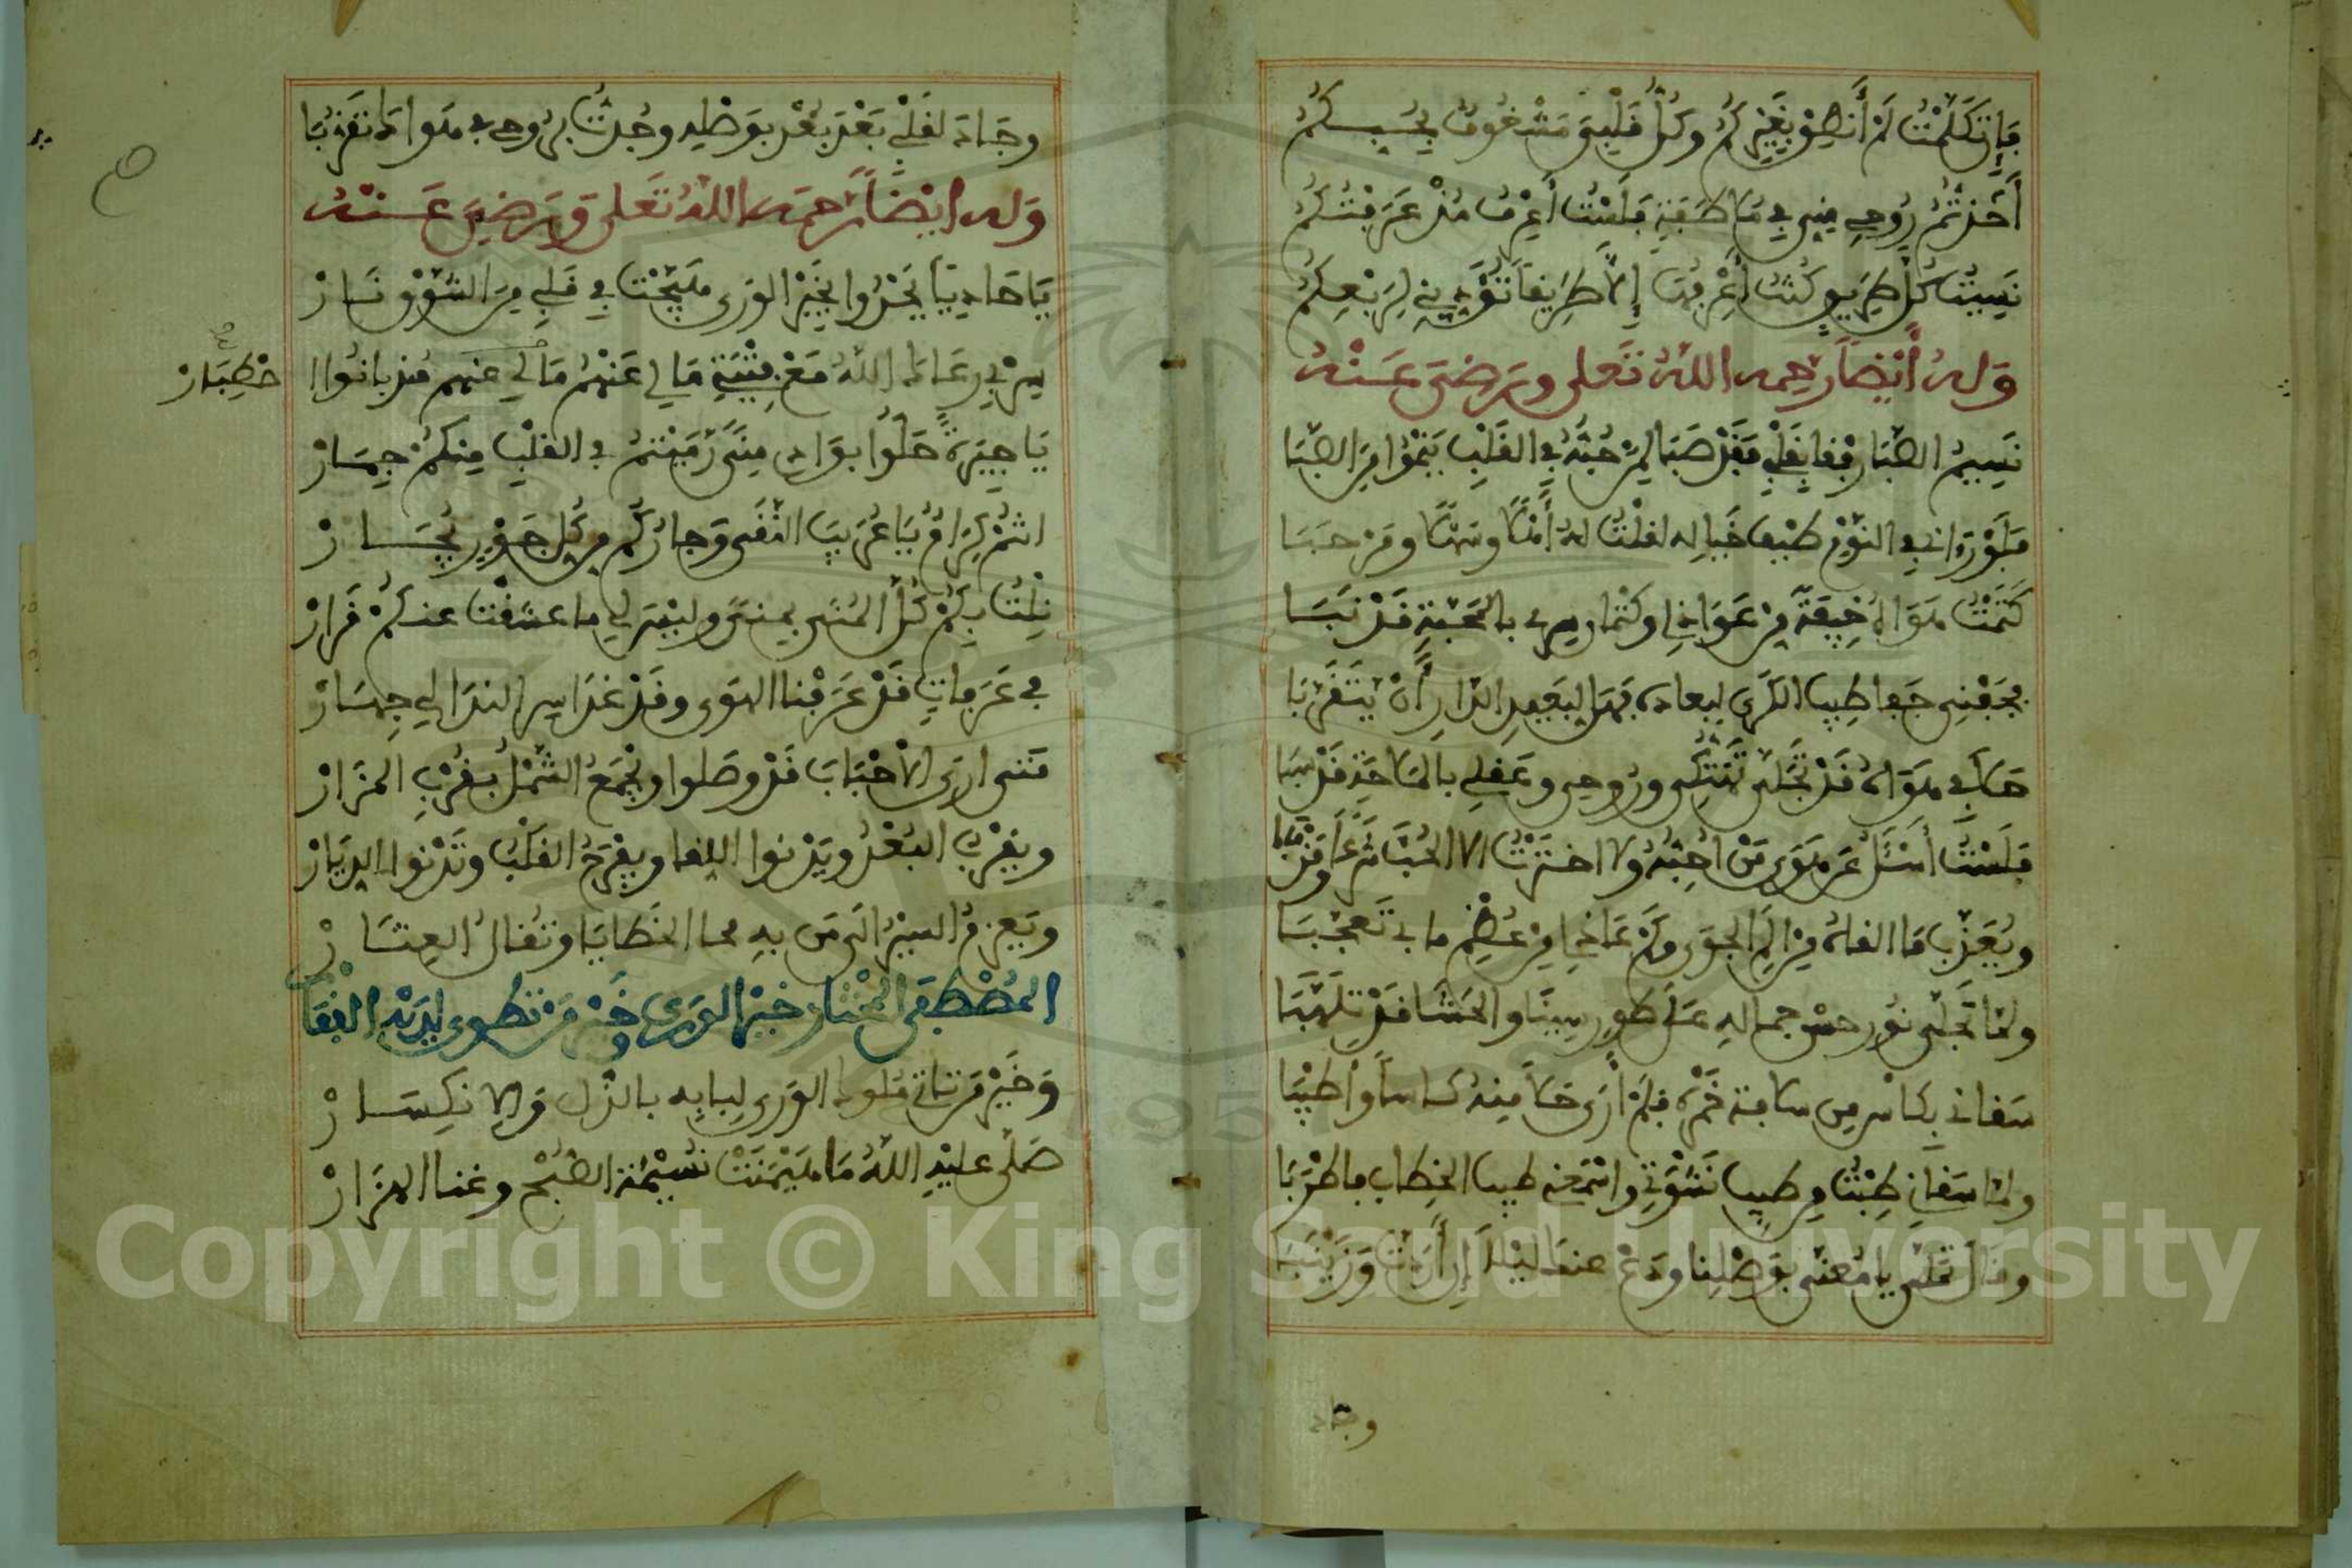 فإن تكلمت لم أنطق بغيركم وكل قلبي مشغوف بحبكم
أخذتم روحي مني في ملاطفة فلست أعرف مذ عرفتكم
نسيت كل طريق كنت أعرفها إلا طريقا تؤديني لربعكم
وله أيضا رحمه الله تعلى ورضى عنه
نسيم الصبا رفقا بقلبي فقد صبا لمن حبه في القلب ينموا من الصبا
فلو زارني في النوم طيف خياله لقلت له أهلا وسهلا ومرحبا
كتمت هواه خيفة من عواذلي وكتمان سرى بالمحبة قد نبا
بجفني جفا طيب الكرى لبعاده فهل لبعيد الدار أن يتقربا
حلا لي هواه قد تجلى تهتكى وروحى وعقلي بالملاحة قد سبا
فلست أسئل عن هوى من احبه ولا اخترت الا الحب شرعا ومذهبا
ويعذب ما القاه من الم الجوى وكم عاذل من عظم ما بي تعجبا
ولما تجلى نور حسن جماله على طور سينا والحشا قد تلهبا
سقاني بكاس من سلافة خمره فلم أرى احلا منه كاسا واطيبا
ولما سقاني طبت من طيب نشوتي واسمعني طيب الخطاب فاطربا
وقال تملى يا معنى بوصلنا ودع عنك ليلا إن أردت وزينبا
وجاد
وجاد لقلبي بعد بعد بوصله وجدت بروحى في هواه تقربا
وله ايضا رحمه الله تعلى ورضي عنه
يا حاديا يحدوا بخير الورى هيجت في قلبي من الشوق نار
سر في رعاه الله مع فتية مالي عنهم مالي عنهم مذ بانوا ا
خطبار
يا جيرة حلوا بوادى منى رميتم في القلب منكم جمار
انتم كرام يا عريب النقى وجاركم من كل جور يجار
نلت بكم كل المنى بمنى وليس لي ما عشقت عنكم قرار
في عرفات قد عرفنا الهوى وقد غدا سر الندا لي جهار
متى ارى الاحباب قد وصلوا ويجمع الشمل بقرب المزار
ويقرب البعد ويدنوا اللقا ويفرح القلب وتدنوا الديار
ويعزم السير الى من به محا الخطايا وتقال العثار
المصطفى المختار خير الورى وخير من تطوى لديه القفار
وخير من تاتي ملوك الورى لبابه بالذل والانكسار
صلى عليه الله ما هيمنت نسيمة الصبح وغنا الهزار